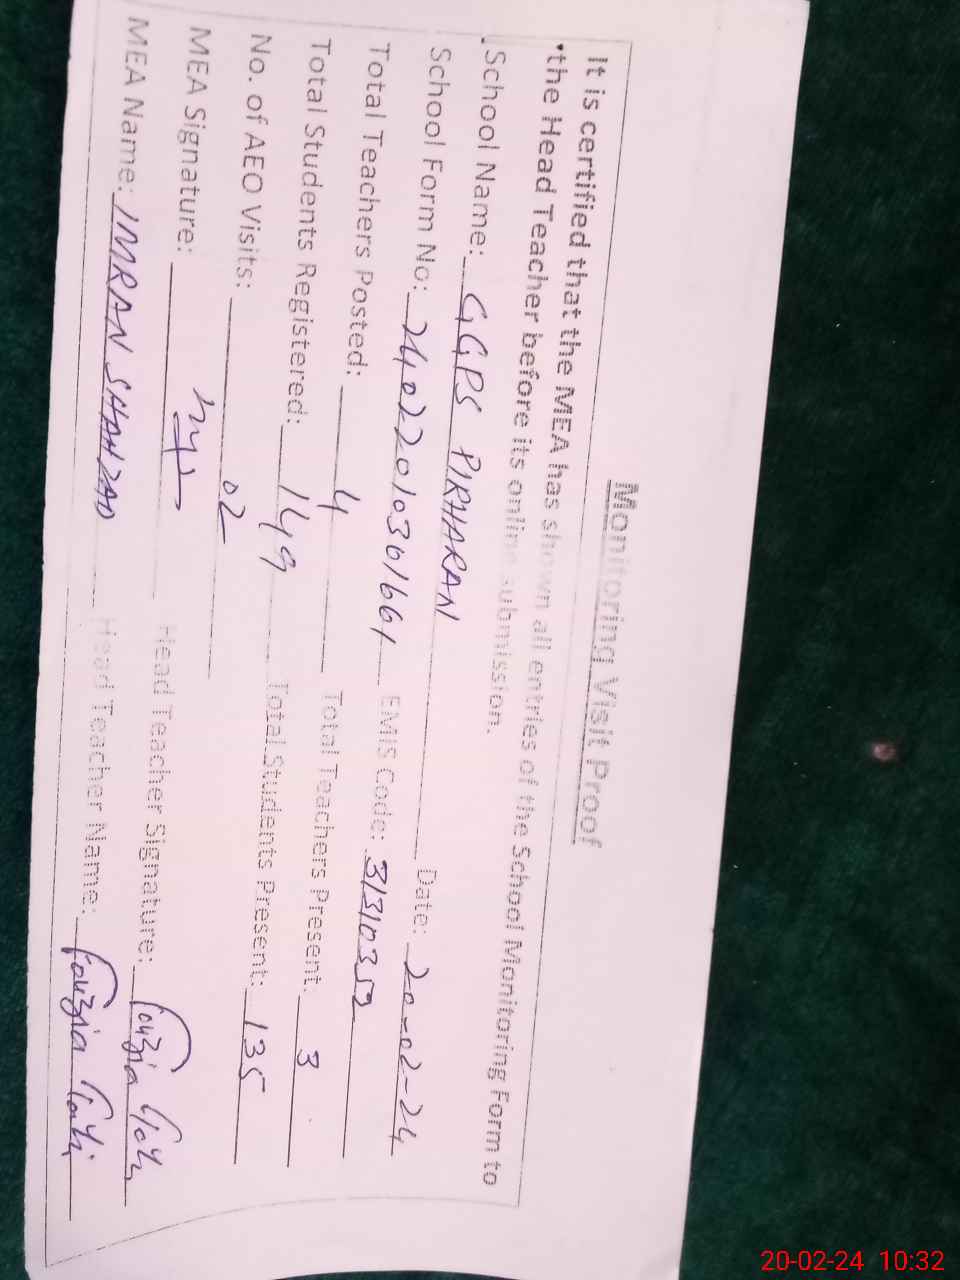 Monitoring Visit Proof
It is certified that the MEA has shown all entries of the School Monitoring Form to
the Head Teacher before its online submission.
School Name: GGPS PIRHARAN Date: 20-02-24
School Form No: 24022010301661 EMIS Code: 31310352
Total Teachers Posted: 4 Total Teachers Present: 3
Total Students Registered: 149 Total Students Present: 135
No. of AEO Visits: 02
MEA Signature: Head Teacher Signature: Fouzia
MEA Name: IMRAN SHAHZAD Head Teacher Name: Fouzia
20-02-24 10:32